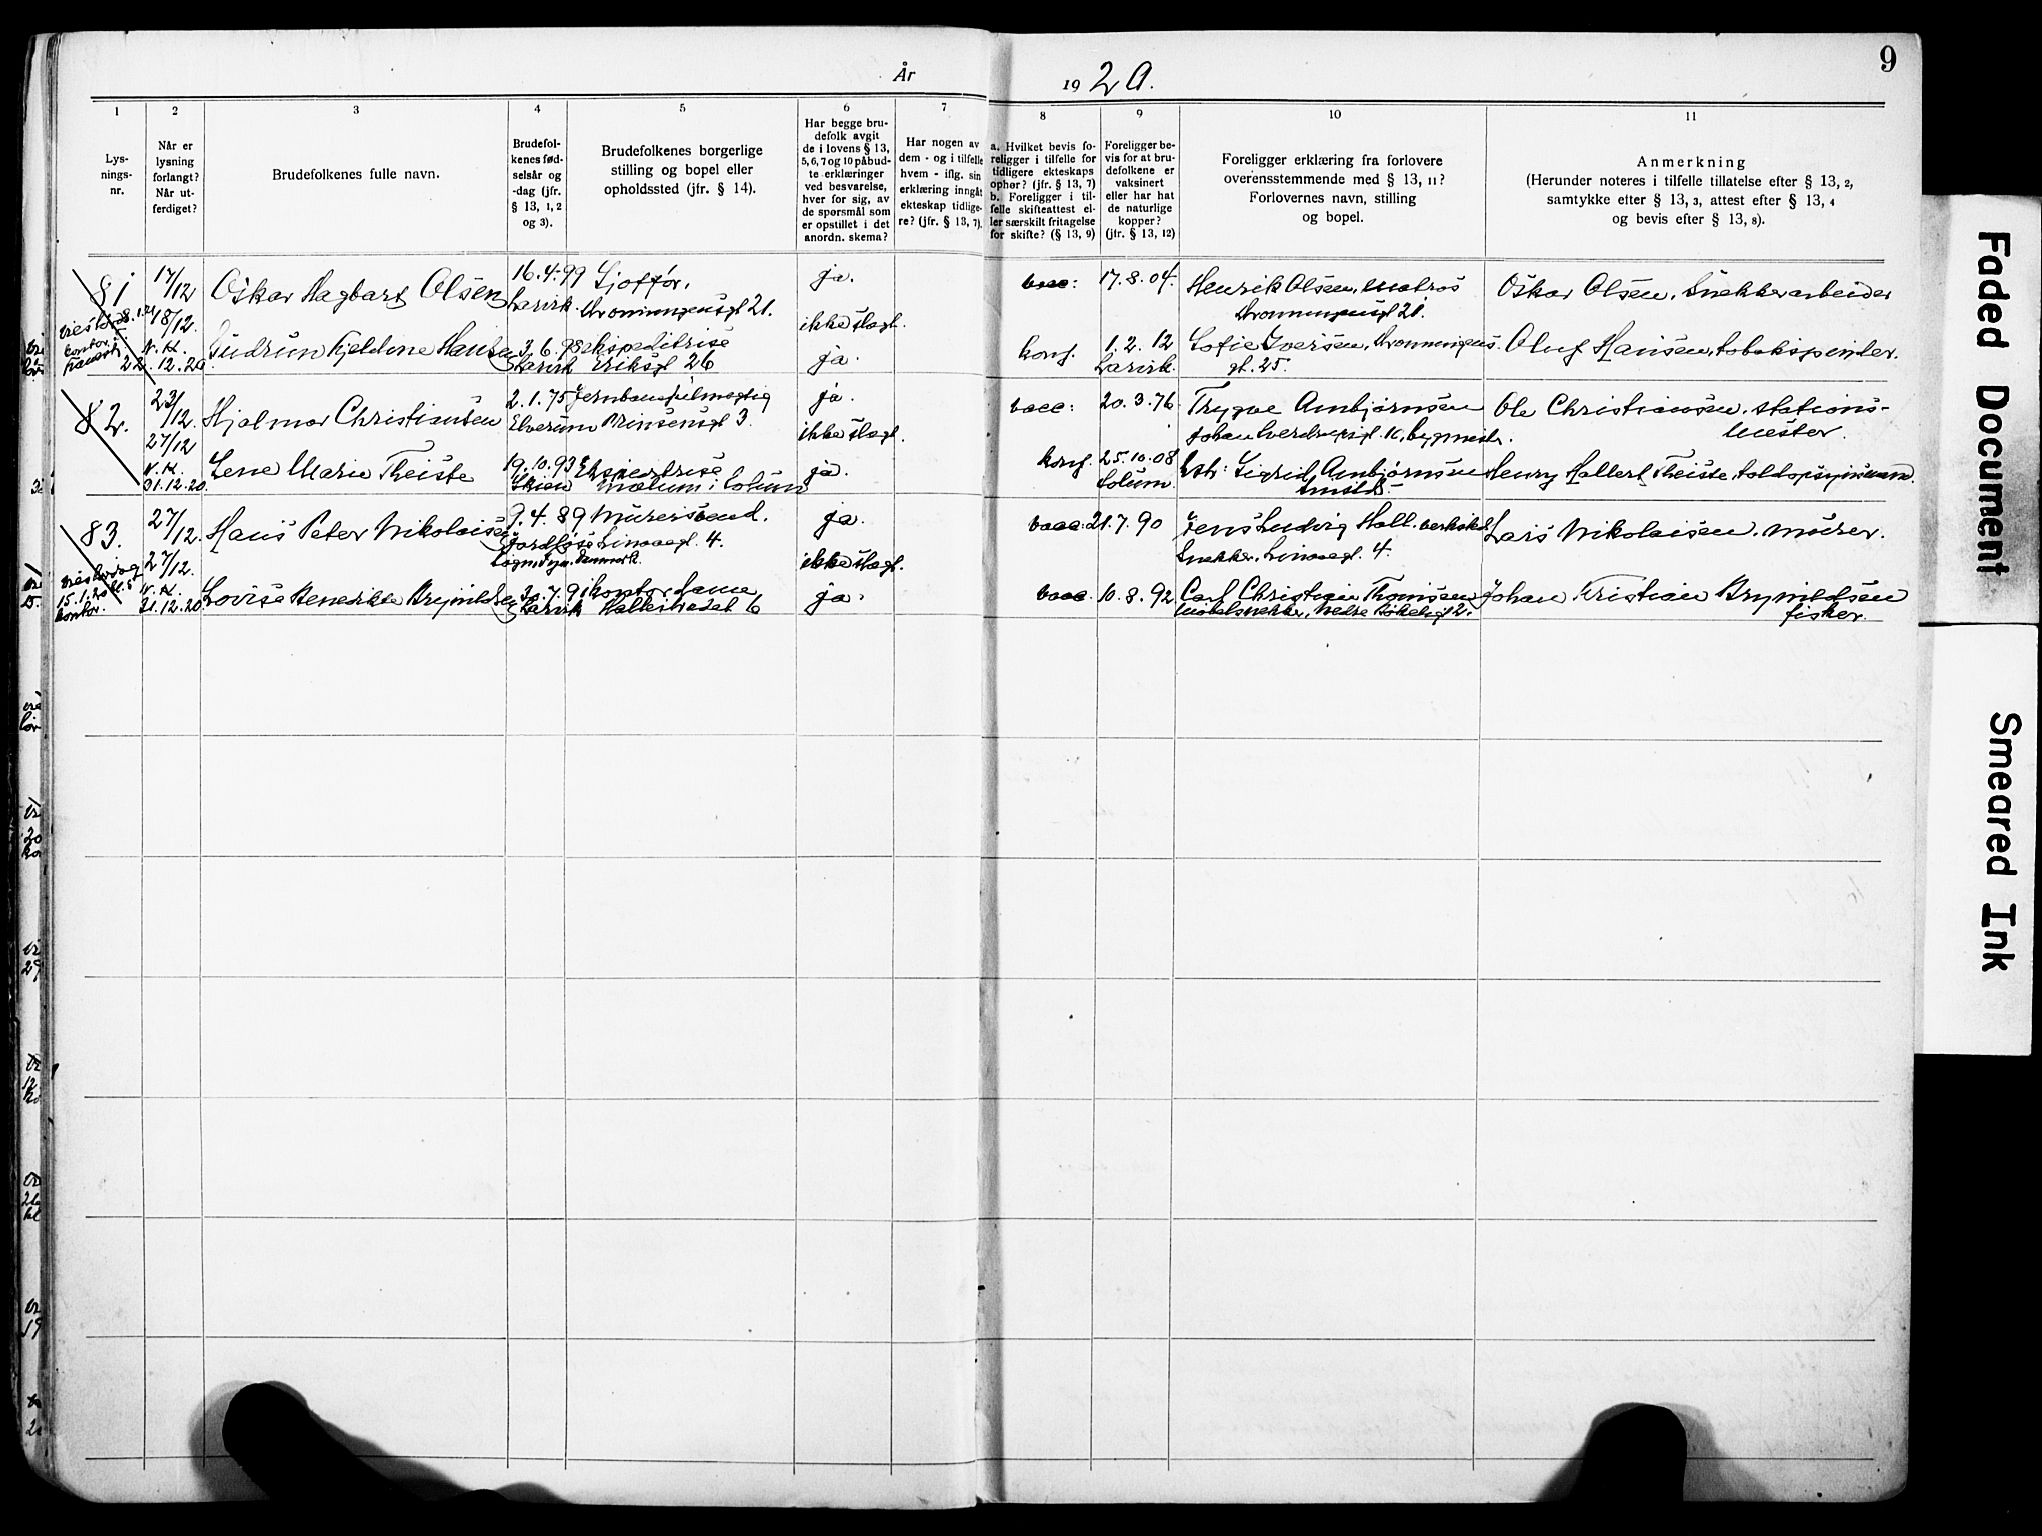 År 1920.
9
1
Lys-
nings-
nr.
2
Når er
lysning
forlangt?
Når ut-
ferdiget?
3
Brudefolkenes fulle navn.
4
Brudefol-
kenes fød-
selsår og
-dag (jfr.
§ 13, 1, 2
og 3).
5
Brudefolkenes borgerlige
stilling og bopel eller
opholdssted (jfr. § 14).
6
Har begge bru-
defolk avgit
de i lovens § 13,
5, 6, 7 og 10 påbud-
te erklæringer
ved besvarelse,
hver for sig, av
de spørsmål som
er opstillet i det
anordn. skema?
7
Har nogen av
dem - og i tilfelle
hvem - iflg. sin
erklæring inngåt
ekteskap tidlige-
re? (jfr. § 13, 7).
8
a. Hvilket bevis fo-
religger i tilfelle for
tidligere ekteskaps
ophør? (jfr. § 13, 7)
b. Foreligger i til-
felle skifteattest el-
ler særskilt fritagelse
for skifte? (§ 13, 9)
9
Foreligger be-
vis for at bru-
defolkene er
vaksinert
eller har hat
de naturlige
kopper?
(jfr. § 13, 12)
10
Foreligger erklæring fra forlovere
overensstemmende med § 13, 11?
Forlovernes navn, stilling
og bopel.
11
Anmerkning
(Herunder noteres i tilfelle tillatelse efter § 13, 2,
samtykke efter § 13, 3, attest efter § 13, 4
og bevis efter § 13, 8).
81
17/12
18/12.
N. K.
22.12.20
Oskar Hagbart Olsen
16.4.99
Larvik.
Sjoffør.
Dronningensgt 21.
ja.
ikke slagt.
vacc:
17.8.04.
Henrik Olsen, matros
Dronningensgt 21.
Oskar Olsen, Snekkerarbeider
Gudrun Kjeldine Hansen
3.6.98
Larvik
ekspeditrise
Eriksgt 26
ja.
konf.
1.2.12
Larvik.
Sofie Iversen, Dronningens
gt. 25.
Oluf Hansen, tobakspinder.
82.
23/12.
27/12
N. K.
31.12.20.
Hjalmar Christiansen
2.1.75
Elverum
Jernbanefulmegtig
Prinsensgt 3.
ja.
ikke slagt.
vacc:
20.3.76
Trygve Ambjørnsen
Ole Christiansen, stations-
mester.
Lene Marie Theiste
19.10.93
Skien
Ekspeditrise
Mælum i Solum
ja.
konf.
25.10.08
Solum.
Sigrid Ambjørnsen
Henry Hallert Theiste, toldopsynsmann.
83.
27/12.
27/12.
N. K.
31.12.20.
Hans Peter Nikolaisen
9.4.89
Jordløse
Sogn, Fyn, Danmark.
Murersvend.
Linaaegt. 4.
ja.
ikke slagt.
vacc:
21.7.90
Jens Ludvig Hall
Snekker, Linaaegt. 4.
Lars Nikolaisen, murer.
Lovise Benedikte Brynildsen
30.7.91
Larvik
kontordame
ja.
vacc.
10.8.92
Carl Christian Thomsen
Møbelsnekker,
Johan Kristian Brynildsen
fisker.
Faded Document
Smeared Ink